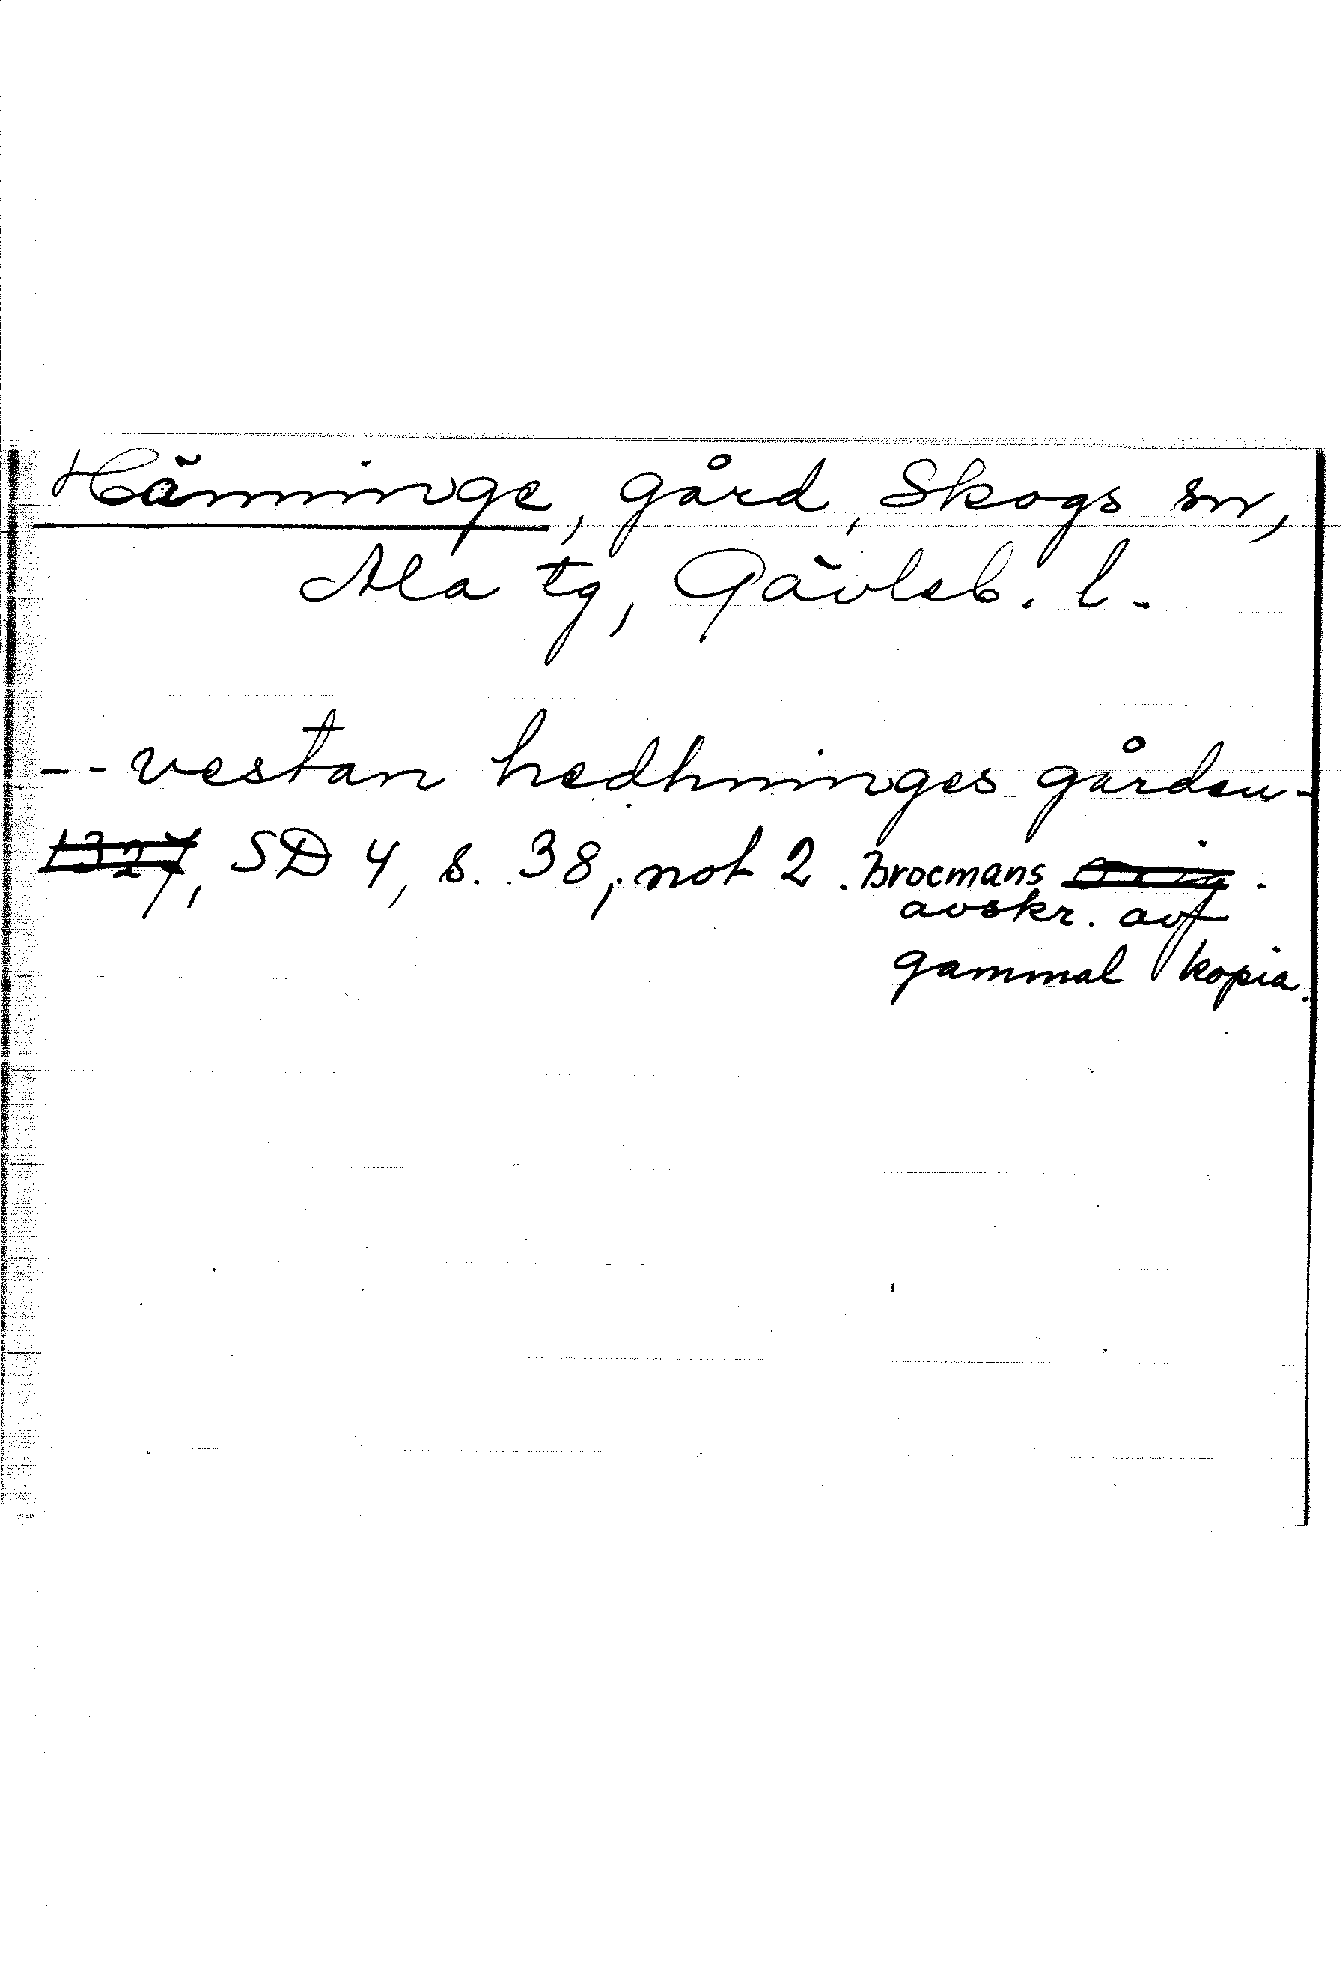 Häninge, gård, Skogs sn,
Ala tg, Gävleb. l.
-- vestan hedhninges gården -
1327, SD 4, s. 38, not 2. Brocmans orig.
avskr. av
gammal kopia.